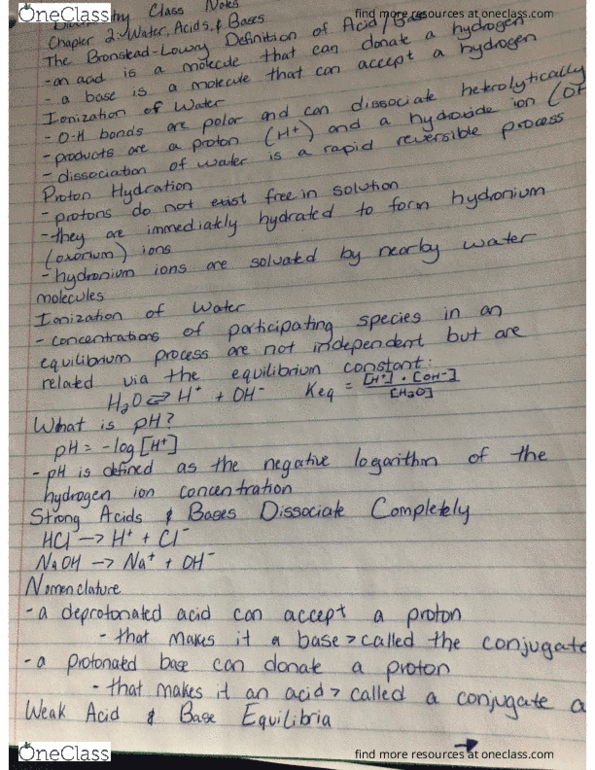 OneClass find more resources at oneclass.com
Class Notes
Chapter 2: Water, Acids, & Bases
The Bronstead-Lowry Definition of Acid/Bases
-an acid is a molecule that can donate a hydrogen
- a base is a molecule that can accept a hydrogen
Ionization of Water
- O-H bonds are polar and can dissociate heterolytically
- products are a proton (H⁺) and a hydroxide ion (OH
- dissociation of water is a rapid reversible process
Proton Hydration
- protons do not exist free in solution
-they are immediately hydrated to form hydronium
(oxonium) ions
- hydronium ions are solvated by nearby water
molecules
Ionization of Water
- concentrations of participating species in an
equilibrium process are not independent but are
related via the equilibrium constant:
H₂O ⇌ H⁺ + OH⁻ Keq = [H⁺] · [OH⁻] / [H₂O]
What is pH?
pH = -log [H⁺]
- pH is defined as the negative logarithm of the
hydrogen ion concentration
Strong Acids & Bases Dissociate Completely
HCl -> H⁺ + Cl⁻
NaOH -> Na⁺ + OH⁻
Nomenclature
- a deprotonated acid can accept a proton
- that makes it a base > called the conjugate
- a protonated base can donate a proton
- that makes it an acid > called a conjugate a
Weak Acid & Base Equilibria
OneClass find more resources at oneclass.com